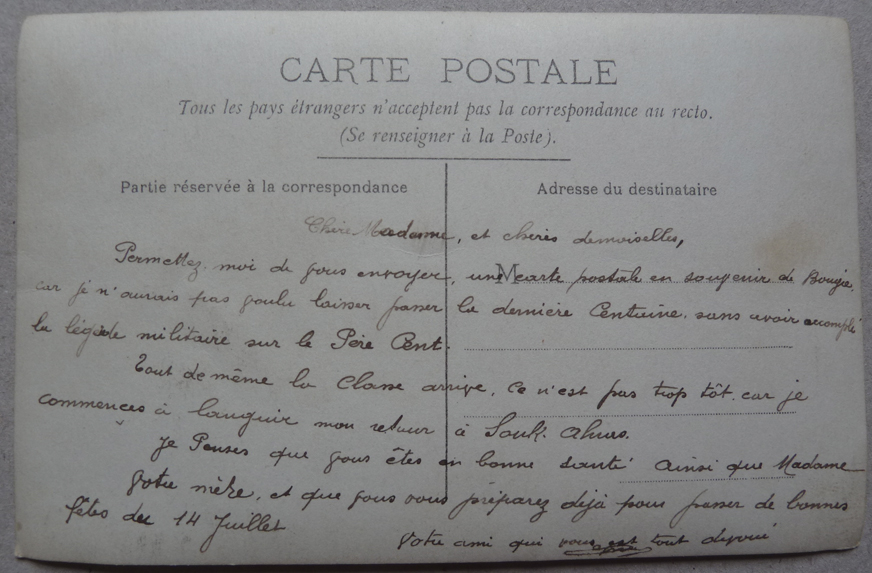 CARTE POSTALE
Tous les pays étrangers n'acceptent pas la correspondance au recto.
(Se renseigner à la Poste).
Partie réservée à la correspondance
Adresse du destinataire
Chère Madame, et chères demoiselles,
M
Permettez, moi de vous envoyer, une carte postale en souvenir de Bougie,
car je n'aurais pas voulu laisser passer la dernière Centaine, sans avoir accompli
la légende militaire sur le Père Cent.
Tout de même la Classe arrive, Ce n'est pas trop tôt, car je
commences à languir mon retour à Souk. Ahras.
Je Penses que vous êtes en bonne santé ainsi que Madame
Votre mère, et que vous vous préparez déjà pour passer de bonnes
fêtes du 14 Juillet
Votre ami qui vous est tout dévoué